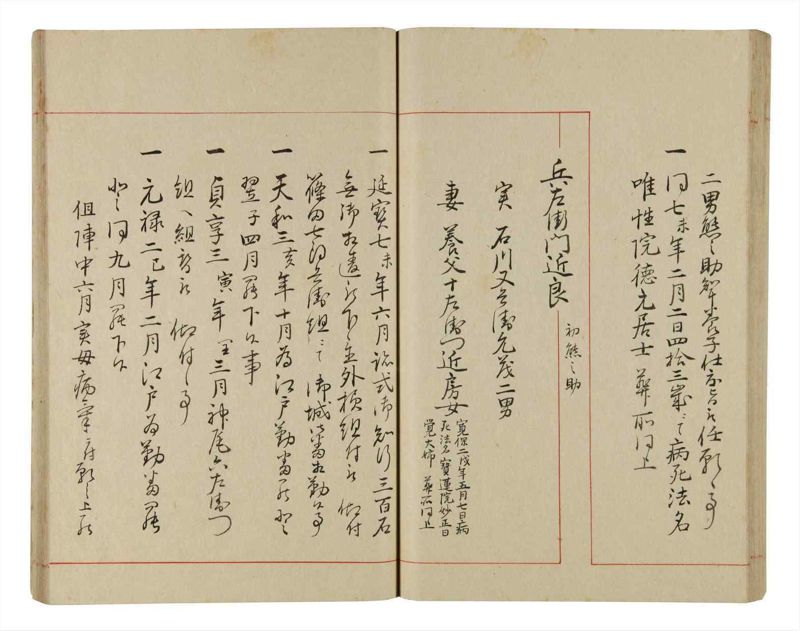 二男熊之助聟養子仕度旨被任願之事
一 同七未年二月二日四拾三歳ニて病死法名
唯性院徳元居士 葬所同上
兵左衛門近良 初熊之助
実 石川又兵衛元茂二男
妻 養父十左衛門近房女
寛保二戌年五月七日病
死法名寶蓮院妙正日
覚大姉 葬所同上
一 延寶七未年六月跡式御知行三百石
無御相違被下之並外様組付被 仰付
篠田七郎兵衛組ニて御城御番相勤候事
一 天和三亥年十月為江戸勤番罷登
翌子四月罷下候事
一 貞享三寅年閏三月神尾六左衛門
組へ組替被 仰付之事
一 元禄二巳年二月江戸為勤番罷
登之同九月罷下候
但陣中六月実母病氣ニ付願之上被